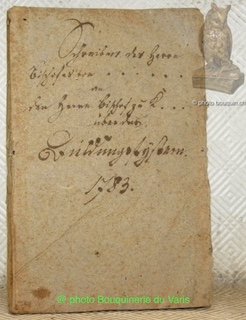 Schreiben des Herrn
Bischofes von . . . . . .
an
den Herrn Bischof zu K . . .
über das
Duldungssystem.
1783.
© photo bouquinerie.ch
© photo Bouquinerie du Varis